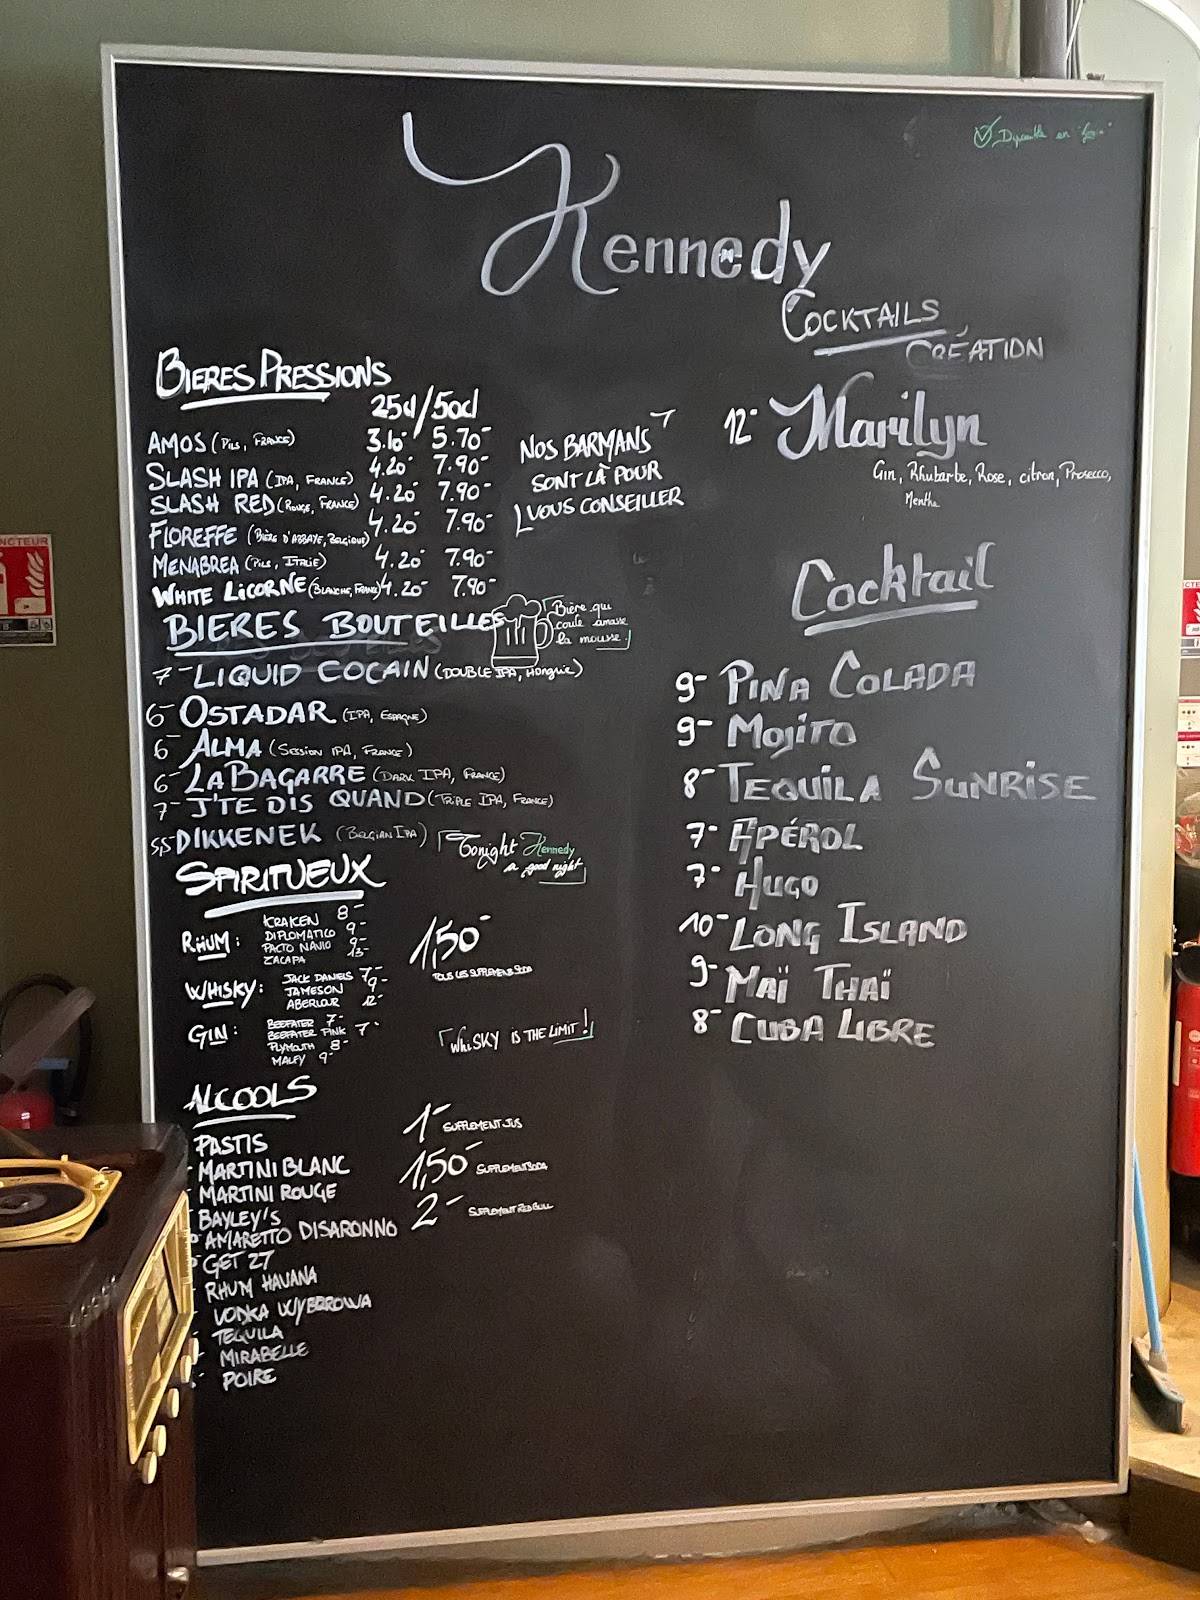 Disponible en
Kennedy
COCKTAILS
CRÉATION
12- Marilyn
Gin, Rhubarbe, Rose, citron, Prosecco,
Menthe
BIERES PRESSIONS
25cl/50cl
AMOS (PILS, FRANCE) 3.10- 5.70-
SLASH IPA (IPA, FRANCE) 4.20- 7.90-
SLASH RED (ROUGE, FRANCE) 4.20- 7.90-
FLOREFFE (BIÈRE D'ABBAYE, BELGIQUE) 4.20- 7.90-
MENABREA (PILS, ITALIE) 4.20- 7.90-
WHITE LICORNE (BLANCHE, FRANCE) 4.20- 7.90-
NOS BARMANS
SONT LÀ POUR
VOUS CONSEILLER
BIERES BOUTEILLES
Bière qui
coule amasse
la mousse!
7- LIQUID COCAIN (DOUBLE IPA, HONGRIE)
6- OSTADAR (IPA, ESPAGNE)
6- ALMA (SESSION IPA, FRANCE)
6- LA BAGARRE (DARK IPA, FRANCE)
7- J'TE DIS QUAND (TRIPLE IPA, FRANCE)
5,5- DIKKENEK (BELGIAN IPA)
Tonight Kennedy
a good night
SPIRITUEUX
RHUM:
KRAKEN 8-
DIPLOMATICO 9-
PACTO NAVIO 9-
ZACAPA 13-
1,50-
TOUS LES SUPPLEMENTS SODA
WHISKY:
JACK DANIELS 7-
JAMESON 9-
ABERLOUR 12-
GIN:
BEEFEATER 7-
BEEFEATER PINK 7-
PLYMOUTH 8-
MALFY 9-
WHISKY IS THE LIMIT!
ALCOOLS
PASTIS
MARTINI BLANC
MARTINI ROUGE
BAYLEY'S
AMARETTO DISARONNO
GET 27
RHUM HAVANA
VODKA WYBOROWA
TEQUILA
MIRABELLE
POIRE
1- SUPPLEMENT JUS
1,50- SUPPLEMENT SODA
2- SUPPLEMENT RED BULL
Cocktail
9- PINA COLADA
9- MOJITO
8- TEQUILA SUNRISE
7- APÉROL
7- HUGO
10- LONG ISLAND
9- MAÏ THAÏ
8- CUBA LIBRE